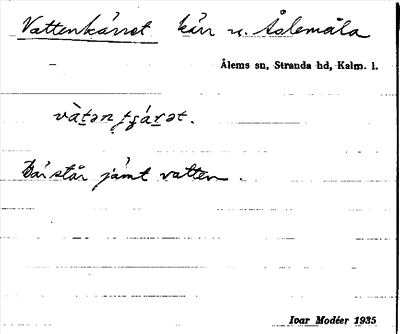 Vattenkärret kärr v. Åslemåla
Ålems sn, Stranda hd, Kalm. l.
Där står jämt vatten.
Ivar Modéer 1935